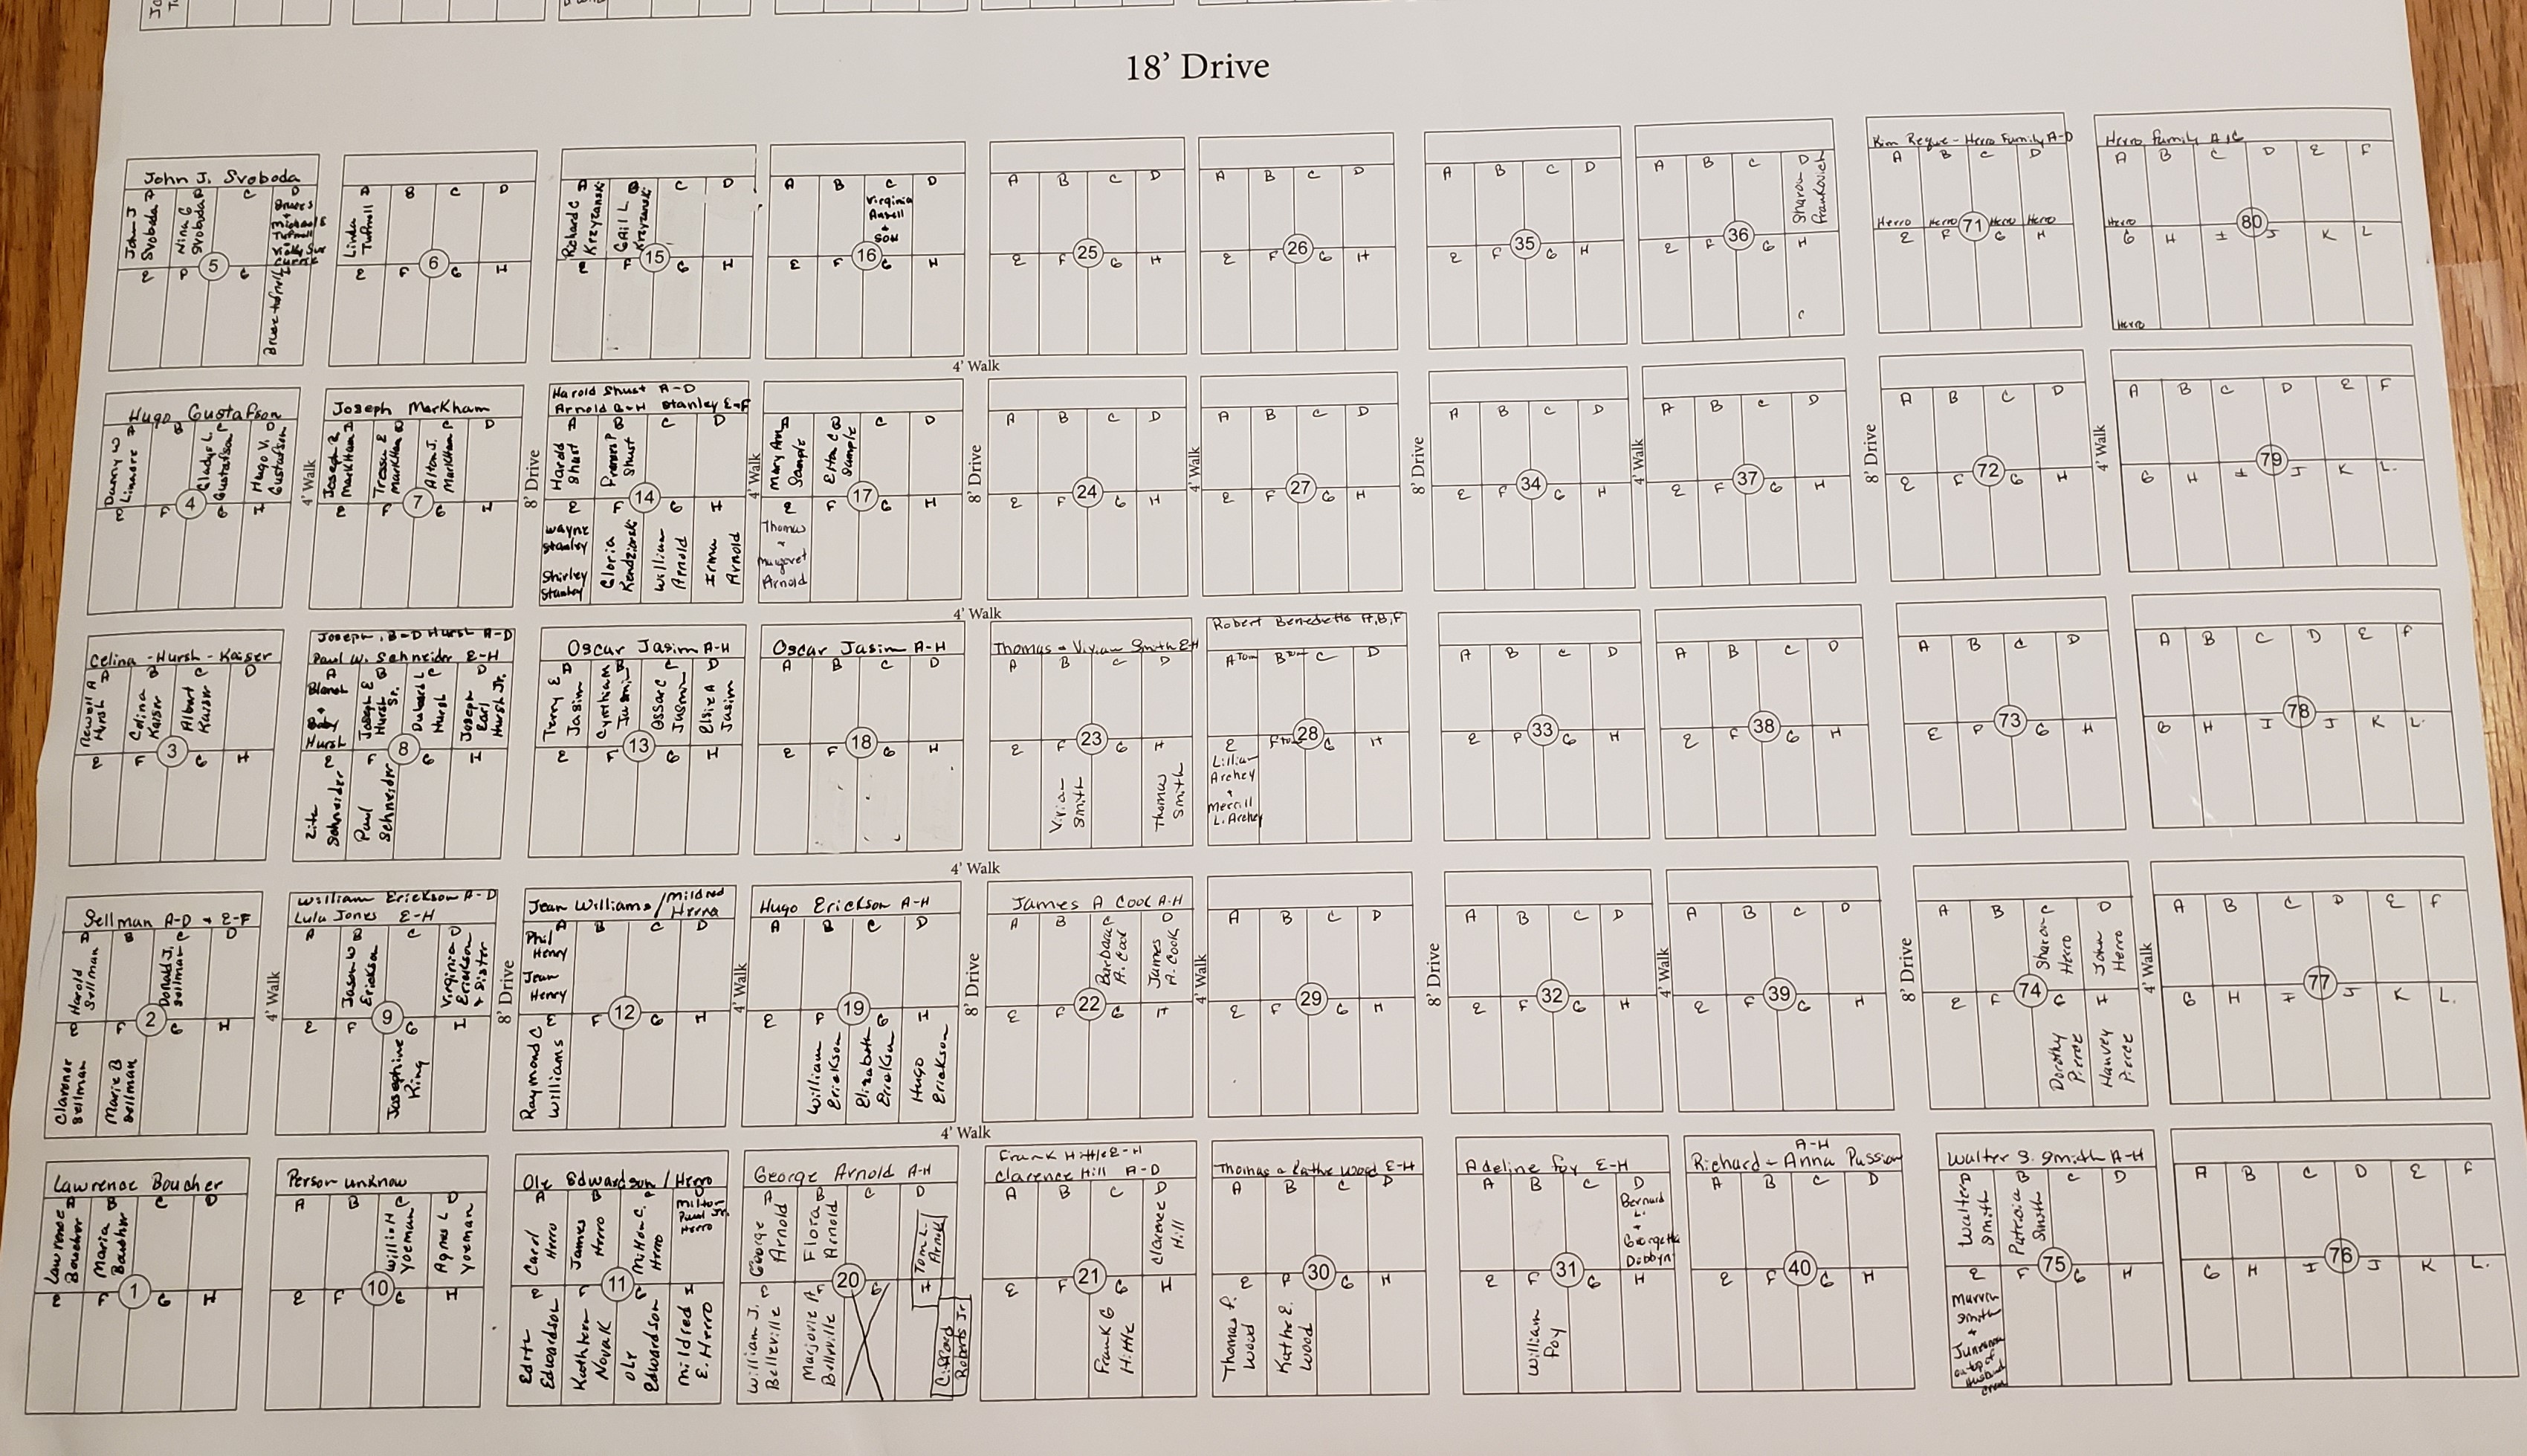 18' Drive
John J. Svoboda
A B C D
John J Svoboda
Nina G Svoboda
Bruce Tufnell
E F 5 G H
A B C D
Linda Tufnell
E F 6 G H
A B C D
Richard C Krzyzanski
Gail L Krzyzanski
E F 15 G H
A B C D
Virginia
Ansell
+
Son
E F 16 G H
A B C D
E F 25 G H
A B C D
E F 26 G H
A B C D
E F 35 G H
A B C D
Sharon Frankovich
E F 36 G H
Kim Reque - Herro Family A-D
A B C D
Herro Herro Herro Herro
E F 71 G H
Herro Family A,G
A B C D E F
Herro
G H I 80 J K L
Herro
4' Walk
Hugo Gustafson
A B C D
Danny W Linmore
Gladys L. Gustafson
Hugo V. Gustafson
E F 4 G H
4' Walk
Joseph Markham
A B C D
Joseph R Markham
Tressa E Markham
Alton J. Markham
E F 7 G H
8' Drive
Harold Shust A-D
Arnold G-H Stanley E-F
A B C D
Harold Shust
Frances P Shust
E F 14 G H
Wayne
Stanley
Shirley
Stanley
Gloria Kendziorski
William Arnold
Irma Arnold
4' Walk
A B C D
Mary Ann Sample
Elton C Sample
E F 17 G H
Thomas
+
Margaret
Arnold
8' Drive
A B C D
E F 24 G H
4' Walk
A B C D
E F 27 G H
8' Drive
A B C D
E F 34 G H
4' Walk
A B C D
E F 37 G H
8' Drive
A B C D
E F 72 G H
4' Walk
A B C D E F
G H I 79 J K L.
4' Walk
Celina - Hursh - Kaiser
A B C D
Newell A Hursh
Celina Kaiser
Albert Kaiser
E F 3 G H
Joseph, B-D Hursh A-D
Paul W. Schneider E-H
A B C D
Hursh
Joseph E Hursh Sr.
Hursh
Joseph Earl Hursh Jr.
E F 8 G H
Zita Schneider
Paul Schneider
Oscar Jasim A-H
A B C D
Terry E Jasim
Cynthia M Jasmin
Ossar C Jasmin
Elsie A Jasim
E F 13 G H
Oscar Jasim A-H
A B C D
E F 18 G H
Thomas - Vivian Smith E-H
A B C D
E F 23 G H
Vivian Smith
Thomas Smith
Robert Benedetto A,B,F
A Tom B Tom C D
E F Tom 28 G H
Lillian
Archey
+
Merrill
L. Archey
A B C D
E F 33 G H
A B C D
E F 38 G H
A B C D
E F 73 G H
A B C D E F
G H I 78 J K L.
4' Walk
Sellman A-D + E-F
A B C D
Harold Sellman
Donald J. Sellman
E F 2 G H
Clarence Sellman
Marie B Sellman
4' Walk
William Erickson A-D
Lula Jones E-H
A B C D
Jason W Erickson
Virginia Erickson + Sister
E F 9 G H
Josephine King
8' Drive
Jean Williams / Mildred Herro
A B C D
Phil
Henry
Jean
Henry
E F 12 G H
Raymond C Williams
4' Walk
Hugo Erickson A-H
A B C D
E F 19 G H
William Erickson
Elizabeth Erickson
Hugo Erickson
8' Drive
James A Cook A-H
A B C D
Barbara A. Cook
James A. Cook
E F 22 G H
4' Walk
A B C D
E F 29 G H
8' Drive
A B C D
E F 32 G H
4' Walk
A B C D
E F 39 G H
8' Drive
A B C D
Sharon Herro
John Herro
E F 74 G H
Dorothy Pierce
Harvey Pierce
4' Walk
A B C D E F
G H I 77 J K L.
4' Walk
Lawrence Boucher
A B C D
Lawrence Boucher
Maria Boucher
E F 1 G H
Person unknow
A B C D
Willis H Yoeman
Agnes L Yoeman
E F 10 G H
Ole Edwardson / Herro
A B C D
Carol Herro
James Herro
Milton C. Herro
Milton
Paul Jr.
Herro
E F 11 G H
Edith Edwardson
Kathleen Novak
Ole Edwardson
Mildred E. Herro
George Arnold A-H
A B C D
George Arnold
Flora Arnold
Tom L. Arnold
E F 20 G H
William J. Belleville
Marjorie A. Belleville
Clifford Roberts Jr
Frank Hittle E-H
Clarence Hill A-D
A B C D
Clarence Hill
E F 21 G H
Frank G Hittle
Thomas + Kathe Wood E-H
A B C D
E F 30 G H
Thomas P. Wood
Kathe E. Wood
Adeline Foy E-H
A B C D
Bernard
L.
+
Georgetta
Dobbyn
E F 31 G H
William Foy
A-H
Richard - Anna Pussion
A B C D
E F 40 G H
Walter S. Smith A-H
A B C D
Walter Smith
Patricia Smith
E F 75 G H
Marvin
Smith
+
on top of
Husband
A B C D E F
G H I 76 J K L.